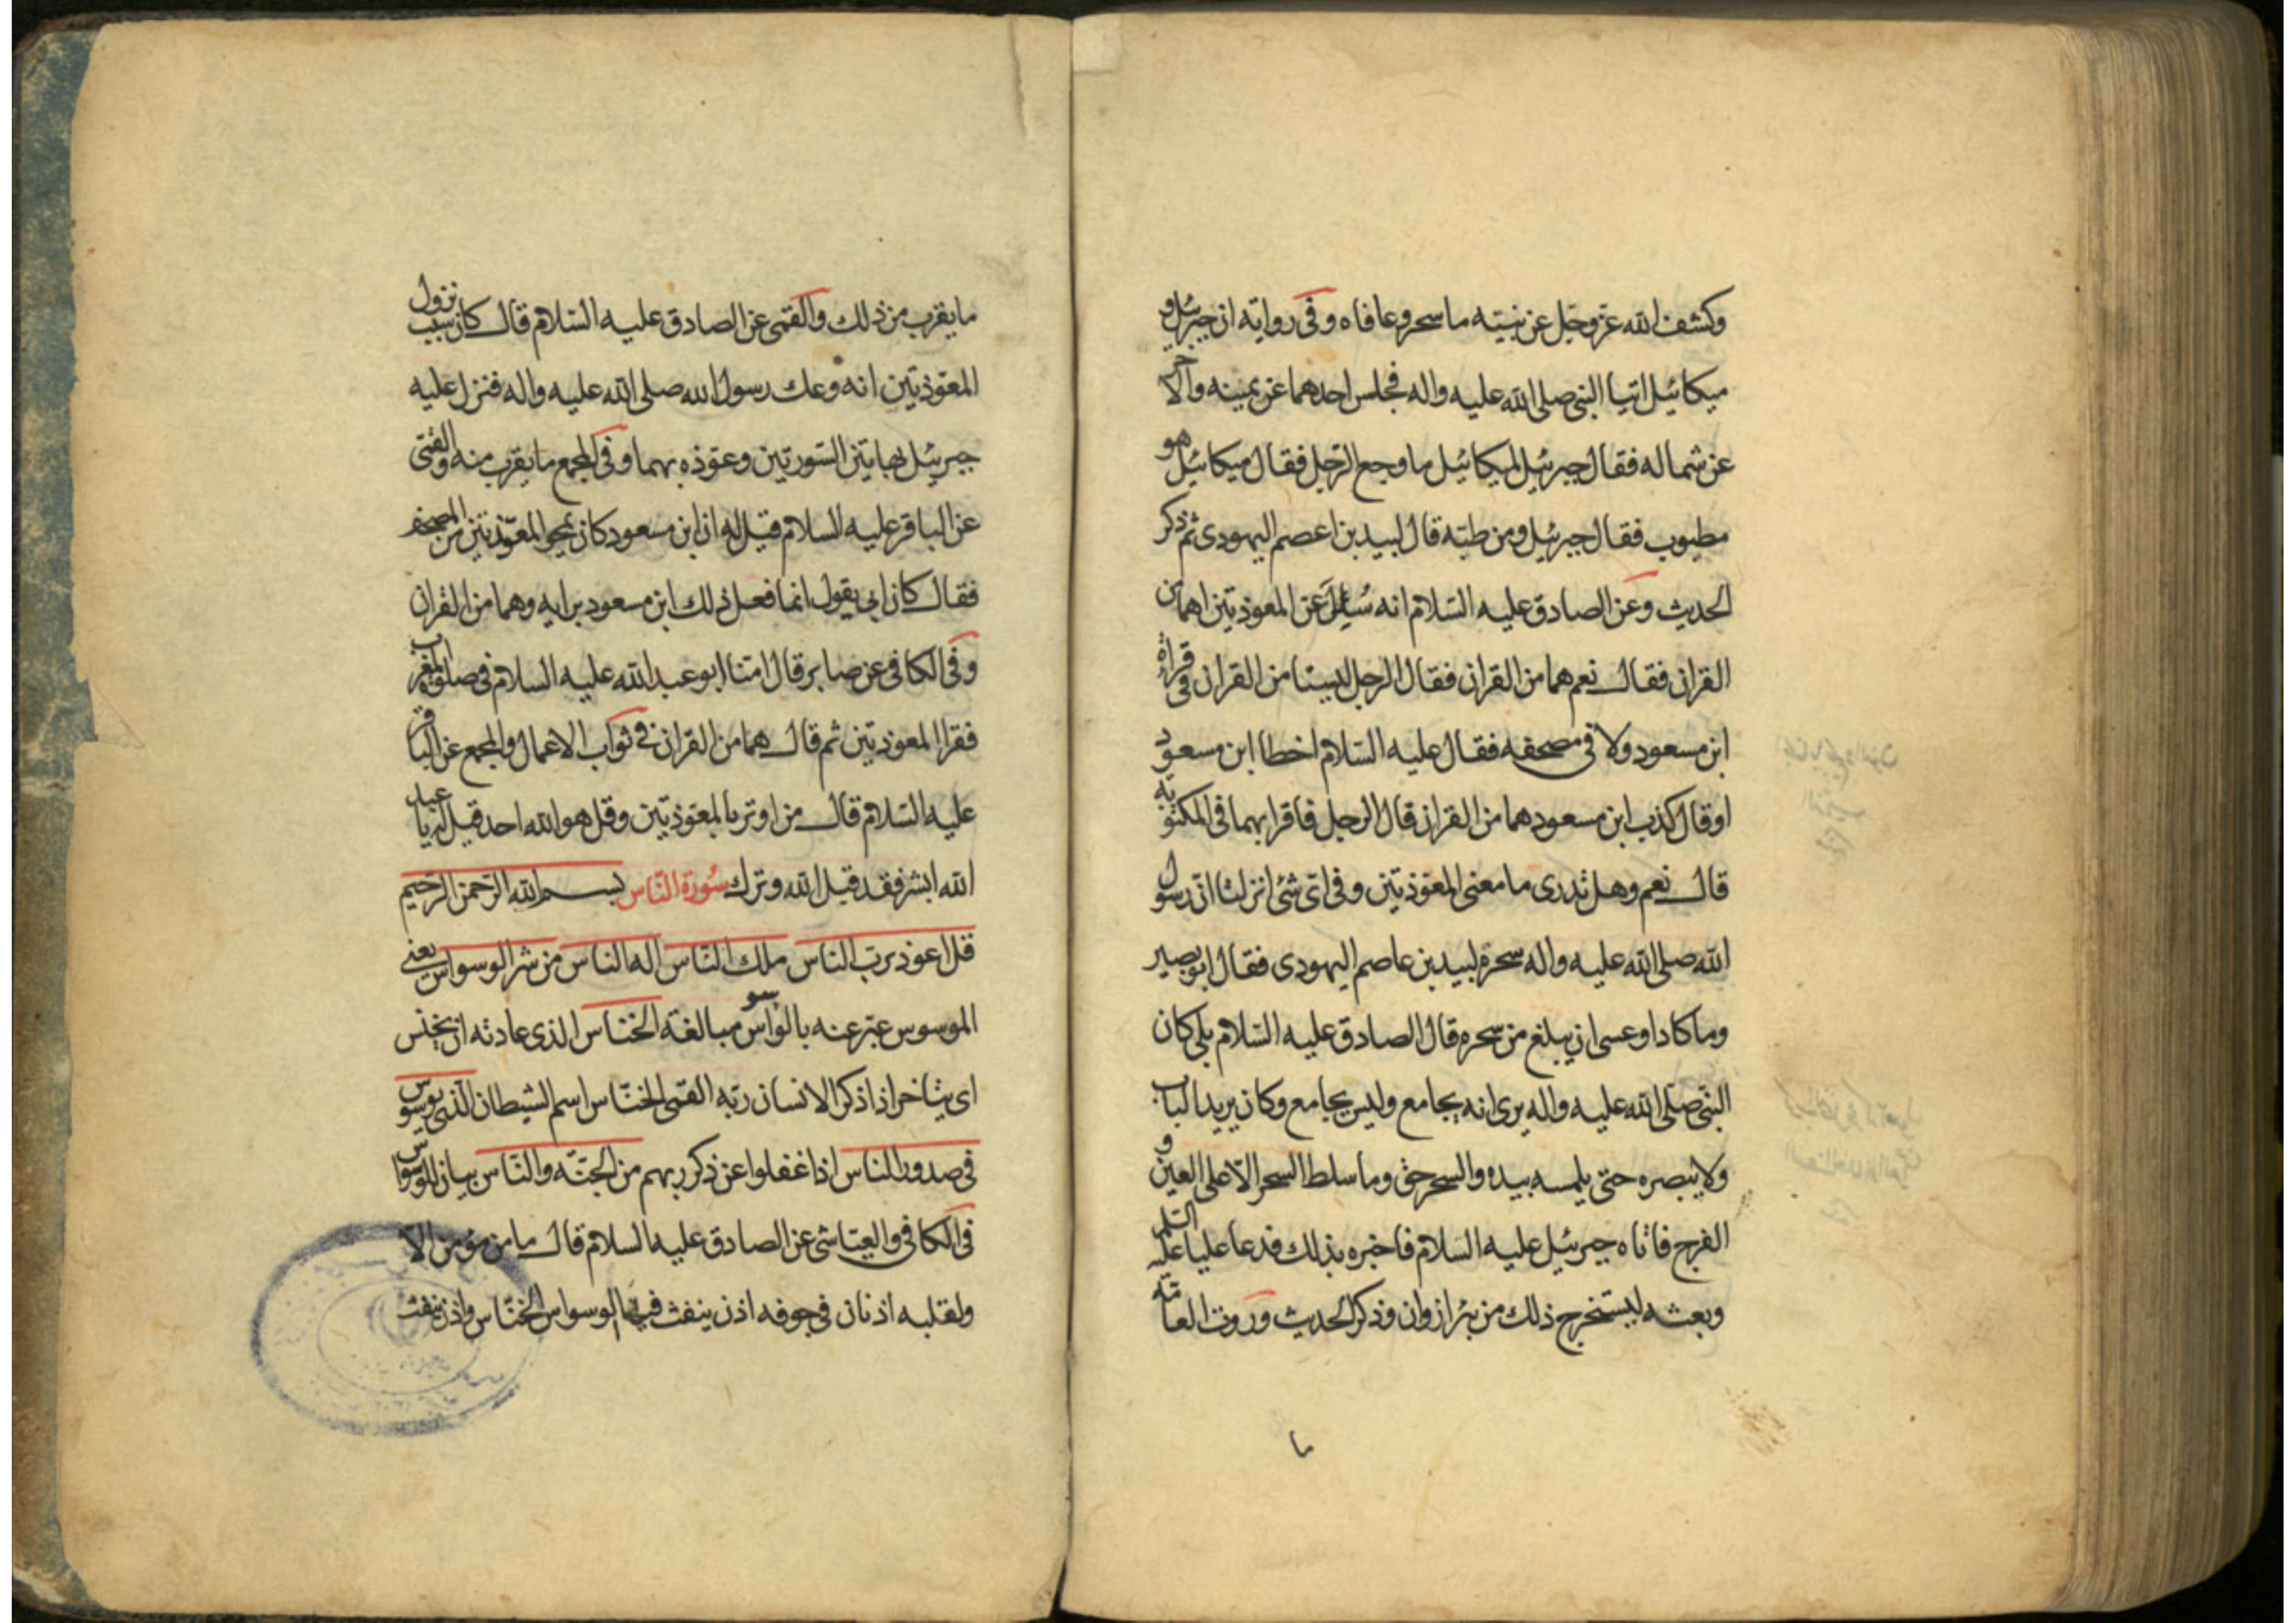 وكشف الله عز وجل عن نبيه ما سحر وعافاه وفى رواية ان جبرئيل و
ميكائيل اتيا النبى صلى الله عليه واله فجلس احدهما عن يمينه والاخر
عن شماله فقال جبرئيل لميكائيل ما وجع الرجل فقال ميكائيل هو
مطبوب فقال جبرئيل ومن طبه قال لبيد بن اعصم اليهودى ثم ذكر
الحديث وعن الصادق عليه السلام انه سئل عن المعوذتين اهما من
القران فقال نعم هما من القران فقال الرجل ليستا من القران فى قراءة
ابن مسعود ولا فى مصحفه فقال عليه السلام اخطا ابن مسعود
او قال كذب ابن مسعود هما من القران قال الرجل فاقرا بهما فى المكتوبة
قال نعم وهل تدرى ما معنى المعوذتين وفى اى شئ انزلتا ان رسول
الله صلى الله عليه واله سحره لبيد بن عاصم اليهودى فقال ابو بصير
وما كاد او عسى ان يبلغ من سحره قال الصادق عليه السلام بلى كان
النبى صلى الله عليه واله يرى انه يجامع وليس يجامع وكان يريد الباب
ولا يبصره حتى يلمسه بيده والسحر حق وما سلط السحر الا على العين و
الفرج فاتاه جبرئيل عليه السلام فاخبره بذلك فدعا عليا عليه السلم
وبعثه ليستخرج ذلك من بئر ازوان وذكر الحديث وروت العامة
ما
ما يقرب من ذلك والقمى عن الصادق عليه السلام قال كان سبب نزول
المعوذتين انه وعك رسول الله صلى الله عليه واله فنزل عليه
جبرئيل بهاتين السورتين وعوذه بهما وفى المجمع ما يقرب منه والقمى
عن الباقر عليه السلام قيل له ان ابن مسعود كان يمحو المعوذتين من المصحف
فقال كان ابى يقول انما فعل ذلك ابن مسعود برايه وهما من القران
وفى الكافى عن صابر قال امنا ابو عبد الله عليه السلام فى صلوة المغرب
فقرا المعوذتين ثم قال هما من القران فى ثواب الاعمال والمجمع عن الباقر
عليه السلام قال من اوتر بالمعوذتين وقل هو الله احد قيل له يا عبد
الله ابشر فقد قبل الله وترك سورة الناس بسم الله الرحمن الرحيم
قل اعوذ برب الناس ملك الناس اله الناس من شر الوسواس يعنى
الموسوس عبر عنه بالوسواس مبالغة الخناس الذى عادته ان يخنس
اى يتاخر اذا ذكر الانسان ربه القمى الخناس اسم الشيطان الذى يوسوس
فى صدور الناس اذا غفلوا عن ذكر ربهم من الجنة والناس بيان للوسواس
فى الكافى والعياشى عن الصادق عليه السلام قال ما من مؤمن الا
ولقلبه اذنان فى جوفه اذن ينفث فيها الوسواس الخناس واذن ينفث